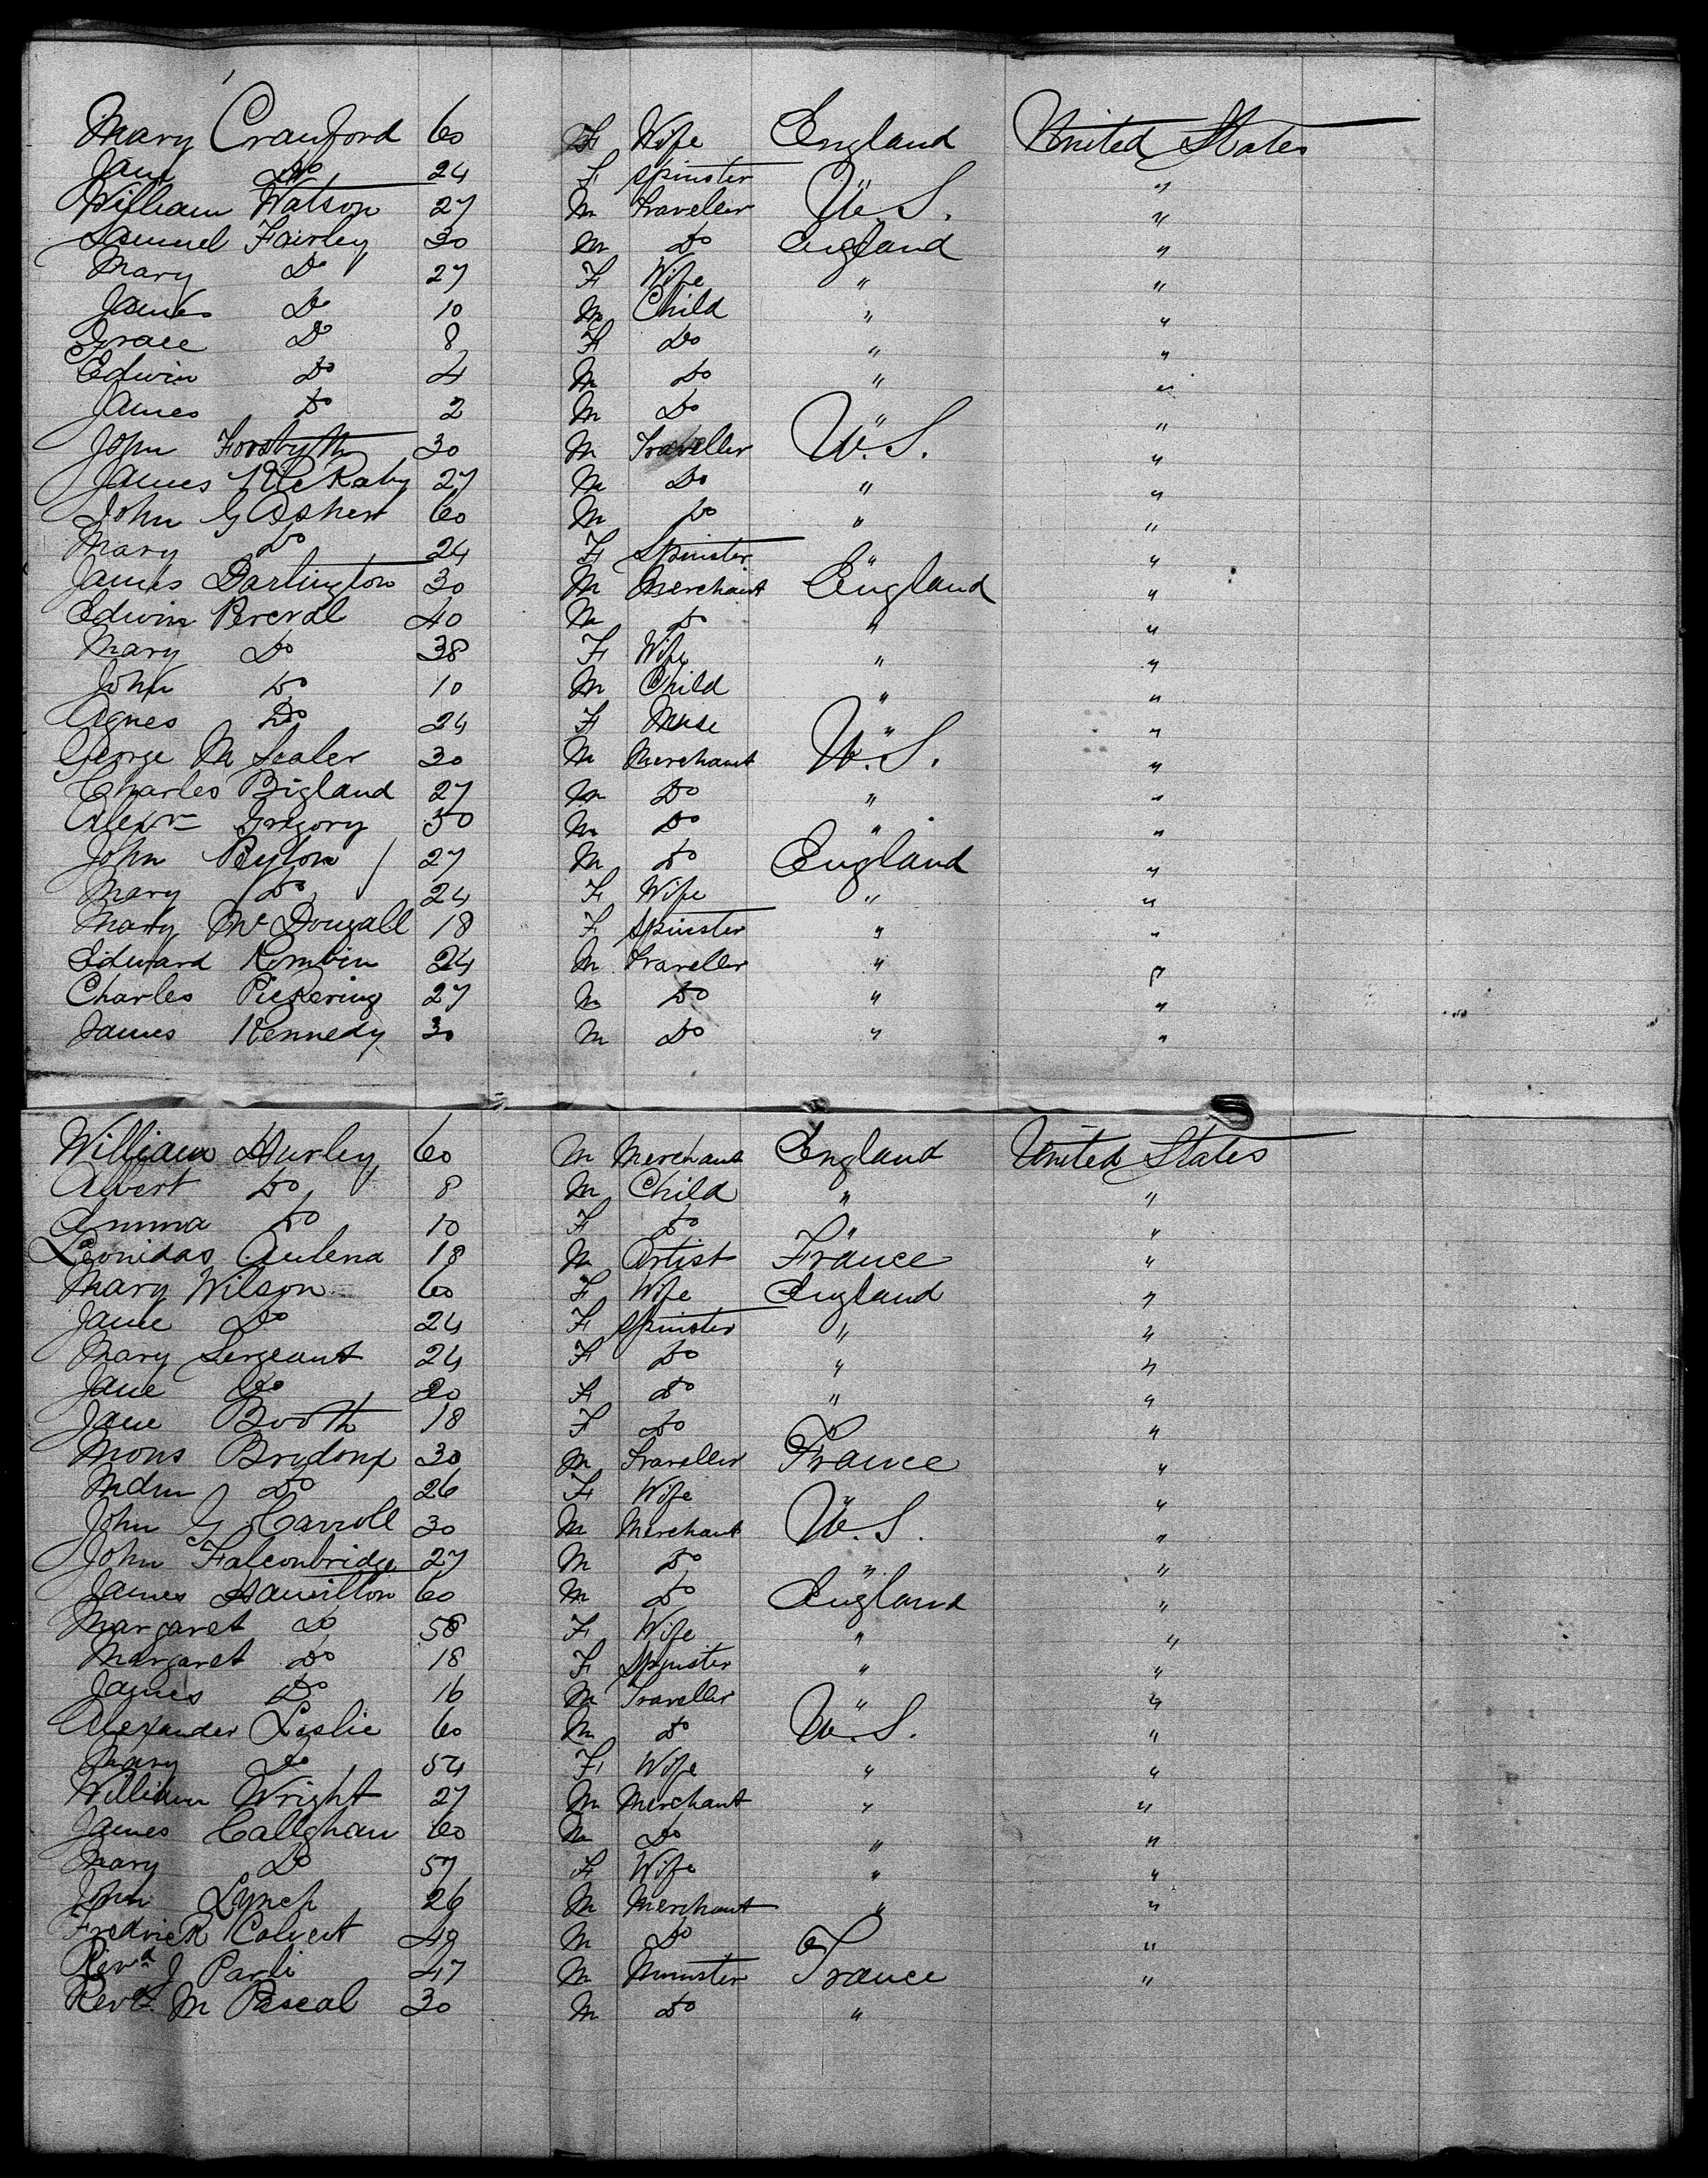 Mary Crawford 60 F Wife England United States
Jane Do 24 F Spinster " "
William Watson 27 M Traveller U.S. "
Samuel Fairley 30 M Do England "
Mary Do 27 F Wife " "
James Do 10 M Child " "
Grace Do 8 F Do " "
Edwin Do 4 M Do " "
James Do 2 M Do " "
John Forsbyth 30 M Traveller U.S. "
James 27 M Do " "
John G Asher 60 M Do " "
Mary Do 24 F Spinster " "
James Darlington 30 M Merchant England "
Edwin Percval 40 M Do " "
Mary Do 38 F Wife " "
John Do 10 M Child " "
Agnes Do 24 F " "
George M Scaler 30 M Merchant U.S. "
Charles Bigland 27 M Do " "
Alexr Gregory 50 M Do " "
John Peyton 27 M Do England "
Mary Do 24 F Wife " "
Mary McDougall 18 F Spinster " "
Edward 24 M Traveller " "
Charles Pickering 27 M Do " "
James Kennedy 30 M Do " "
William Hurley 60 M Merchant England United States
Albert Do 8 M Child " "
Emma Do 10 F Do " "
Leonidas Aulena 18 M Artist France "
Mary Wilson 60 F Wife England "
Jane Do 24 F Spinster " "
Mary Sergeant 24 F Do " "
Jane Do 20 F Do " "
Jane Booth 18 F Do "
Mons Brydonx 30 M Traveller France "
Mdm Do 26 F Wife " "
John G Carroll 30 M Merchant U.S. "
John Falconbridge 27 M Do " "
James Hamilton 60 M Do England "
Margaret Do 58 F Wife " "
Margaret Do 18 F Spinster " "
James Do 16 M Traveller " "
Alexander Leslie 60 M Do U.S. "
Mary Do 54 F Wife " "
William Wright 27 M Merchant " "
James Callghan 60 M Do " "
Mary Do 57 F Wife " "
John Lynch 26 M Merchant " "
Fredrick Calvert 49 M Do "
Revd J Parli 47 M Minister France "
Revd M Pascal 30 M Do "